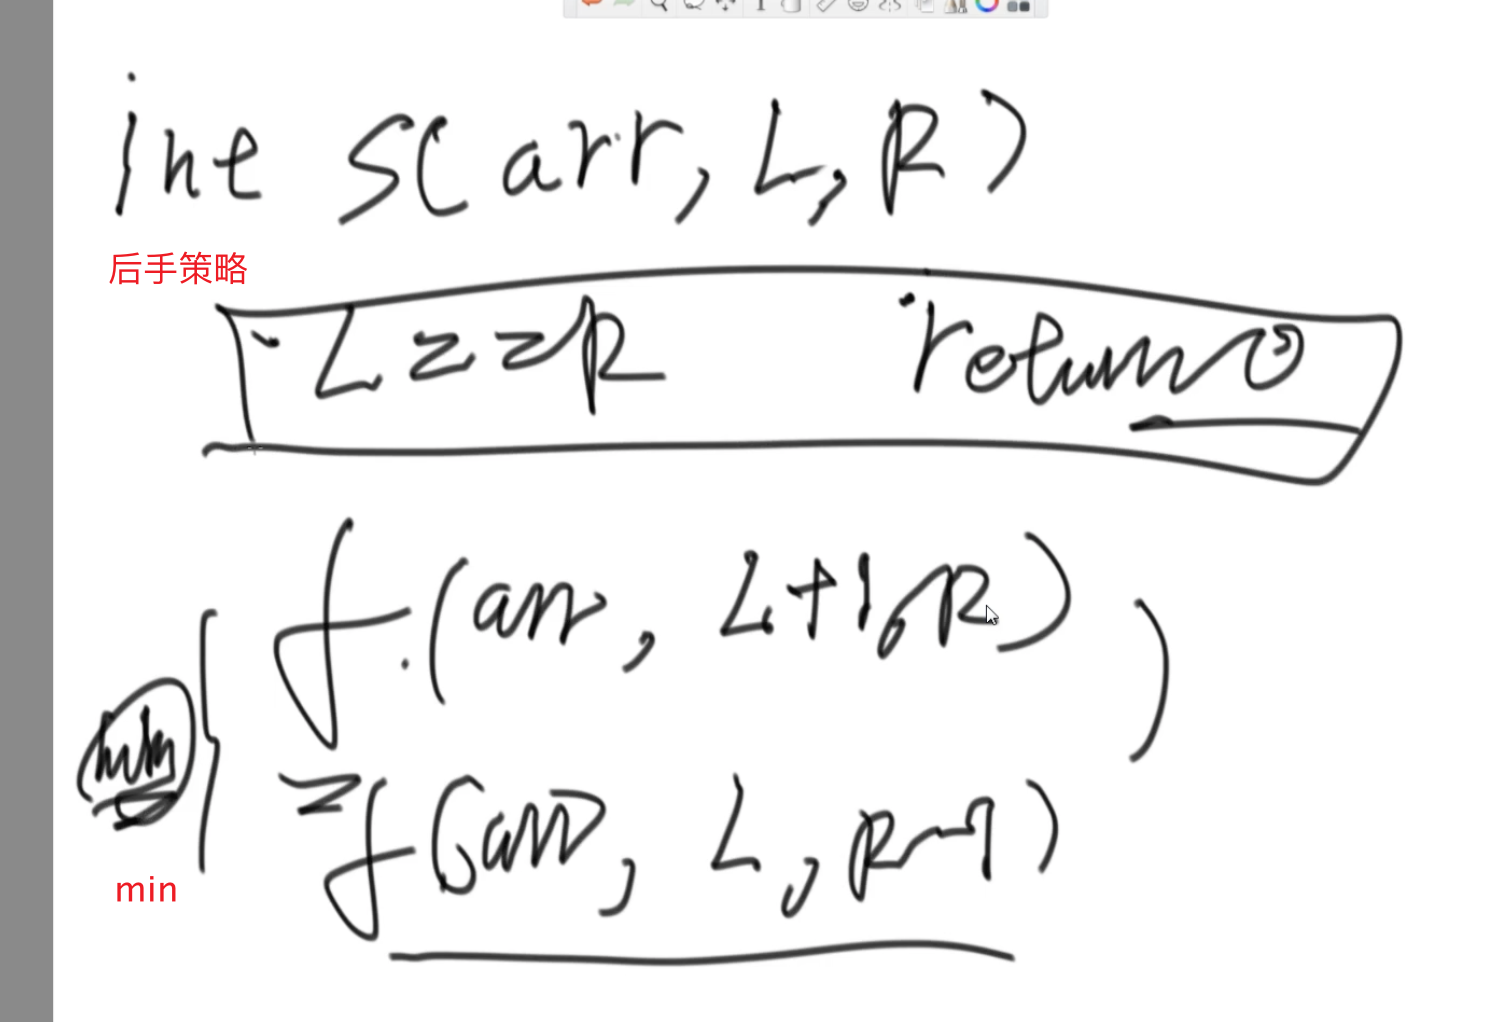 int s(arr, L, R)
后手策略
L == R return 0
f(arr, L+1, R)
min
f(arr, L, R-1)
min